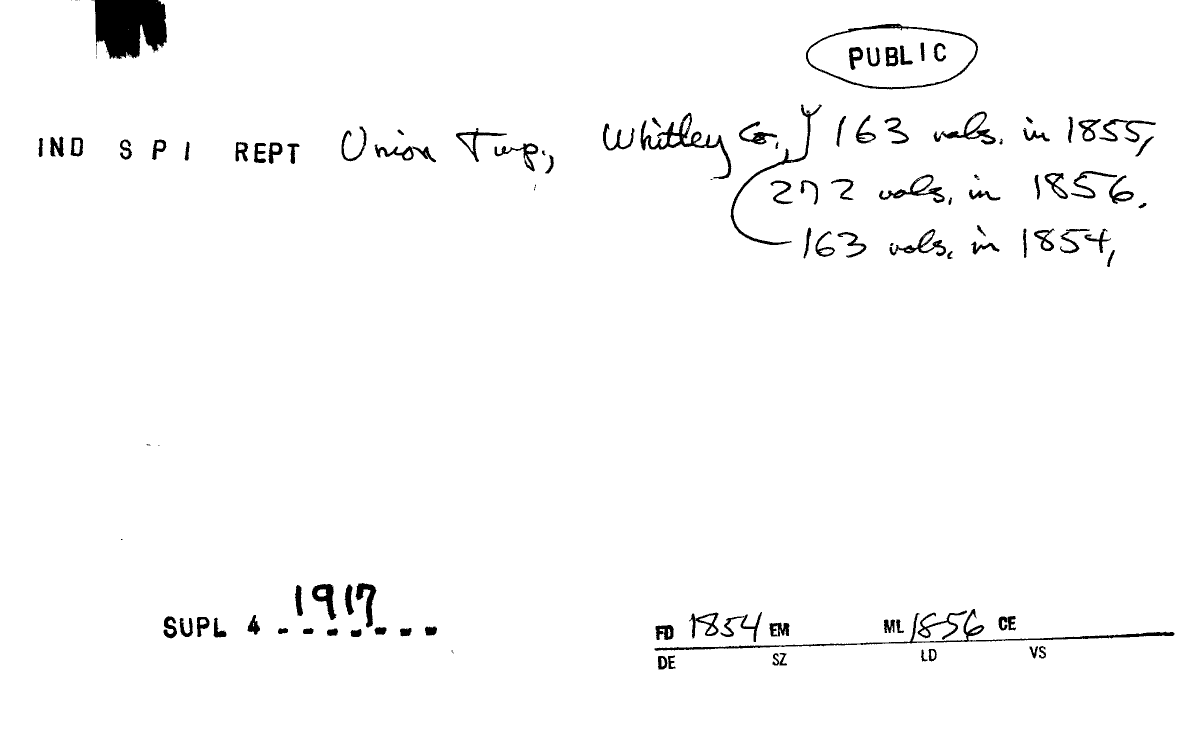 PUBLIC
IND S P I REPT Union Twp., Whitley Co., 163 vols. in 1855,
272 vols. in 1856.
163 vols. in 1854,
1917
SUPL 4 - - - - - - -
FD 1854 EM ML 1856 CE
DE SZ LD VS